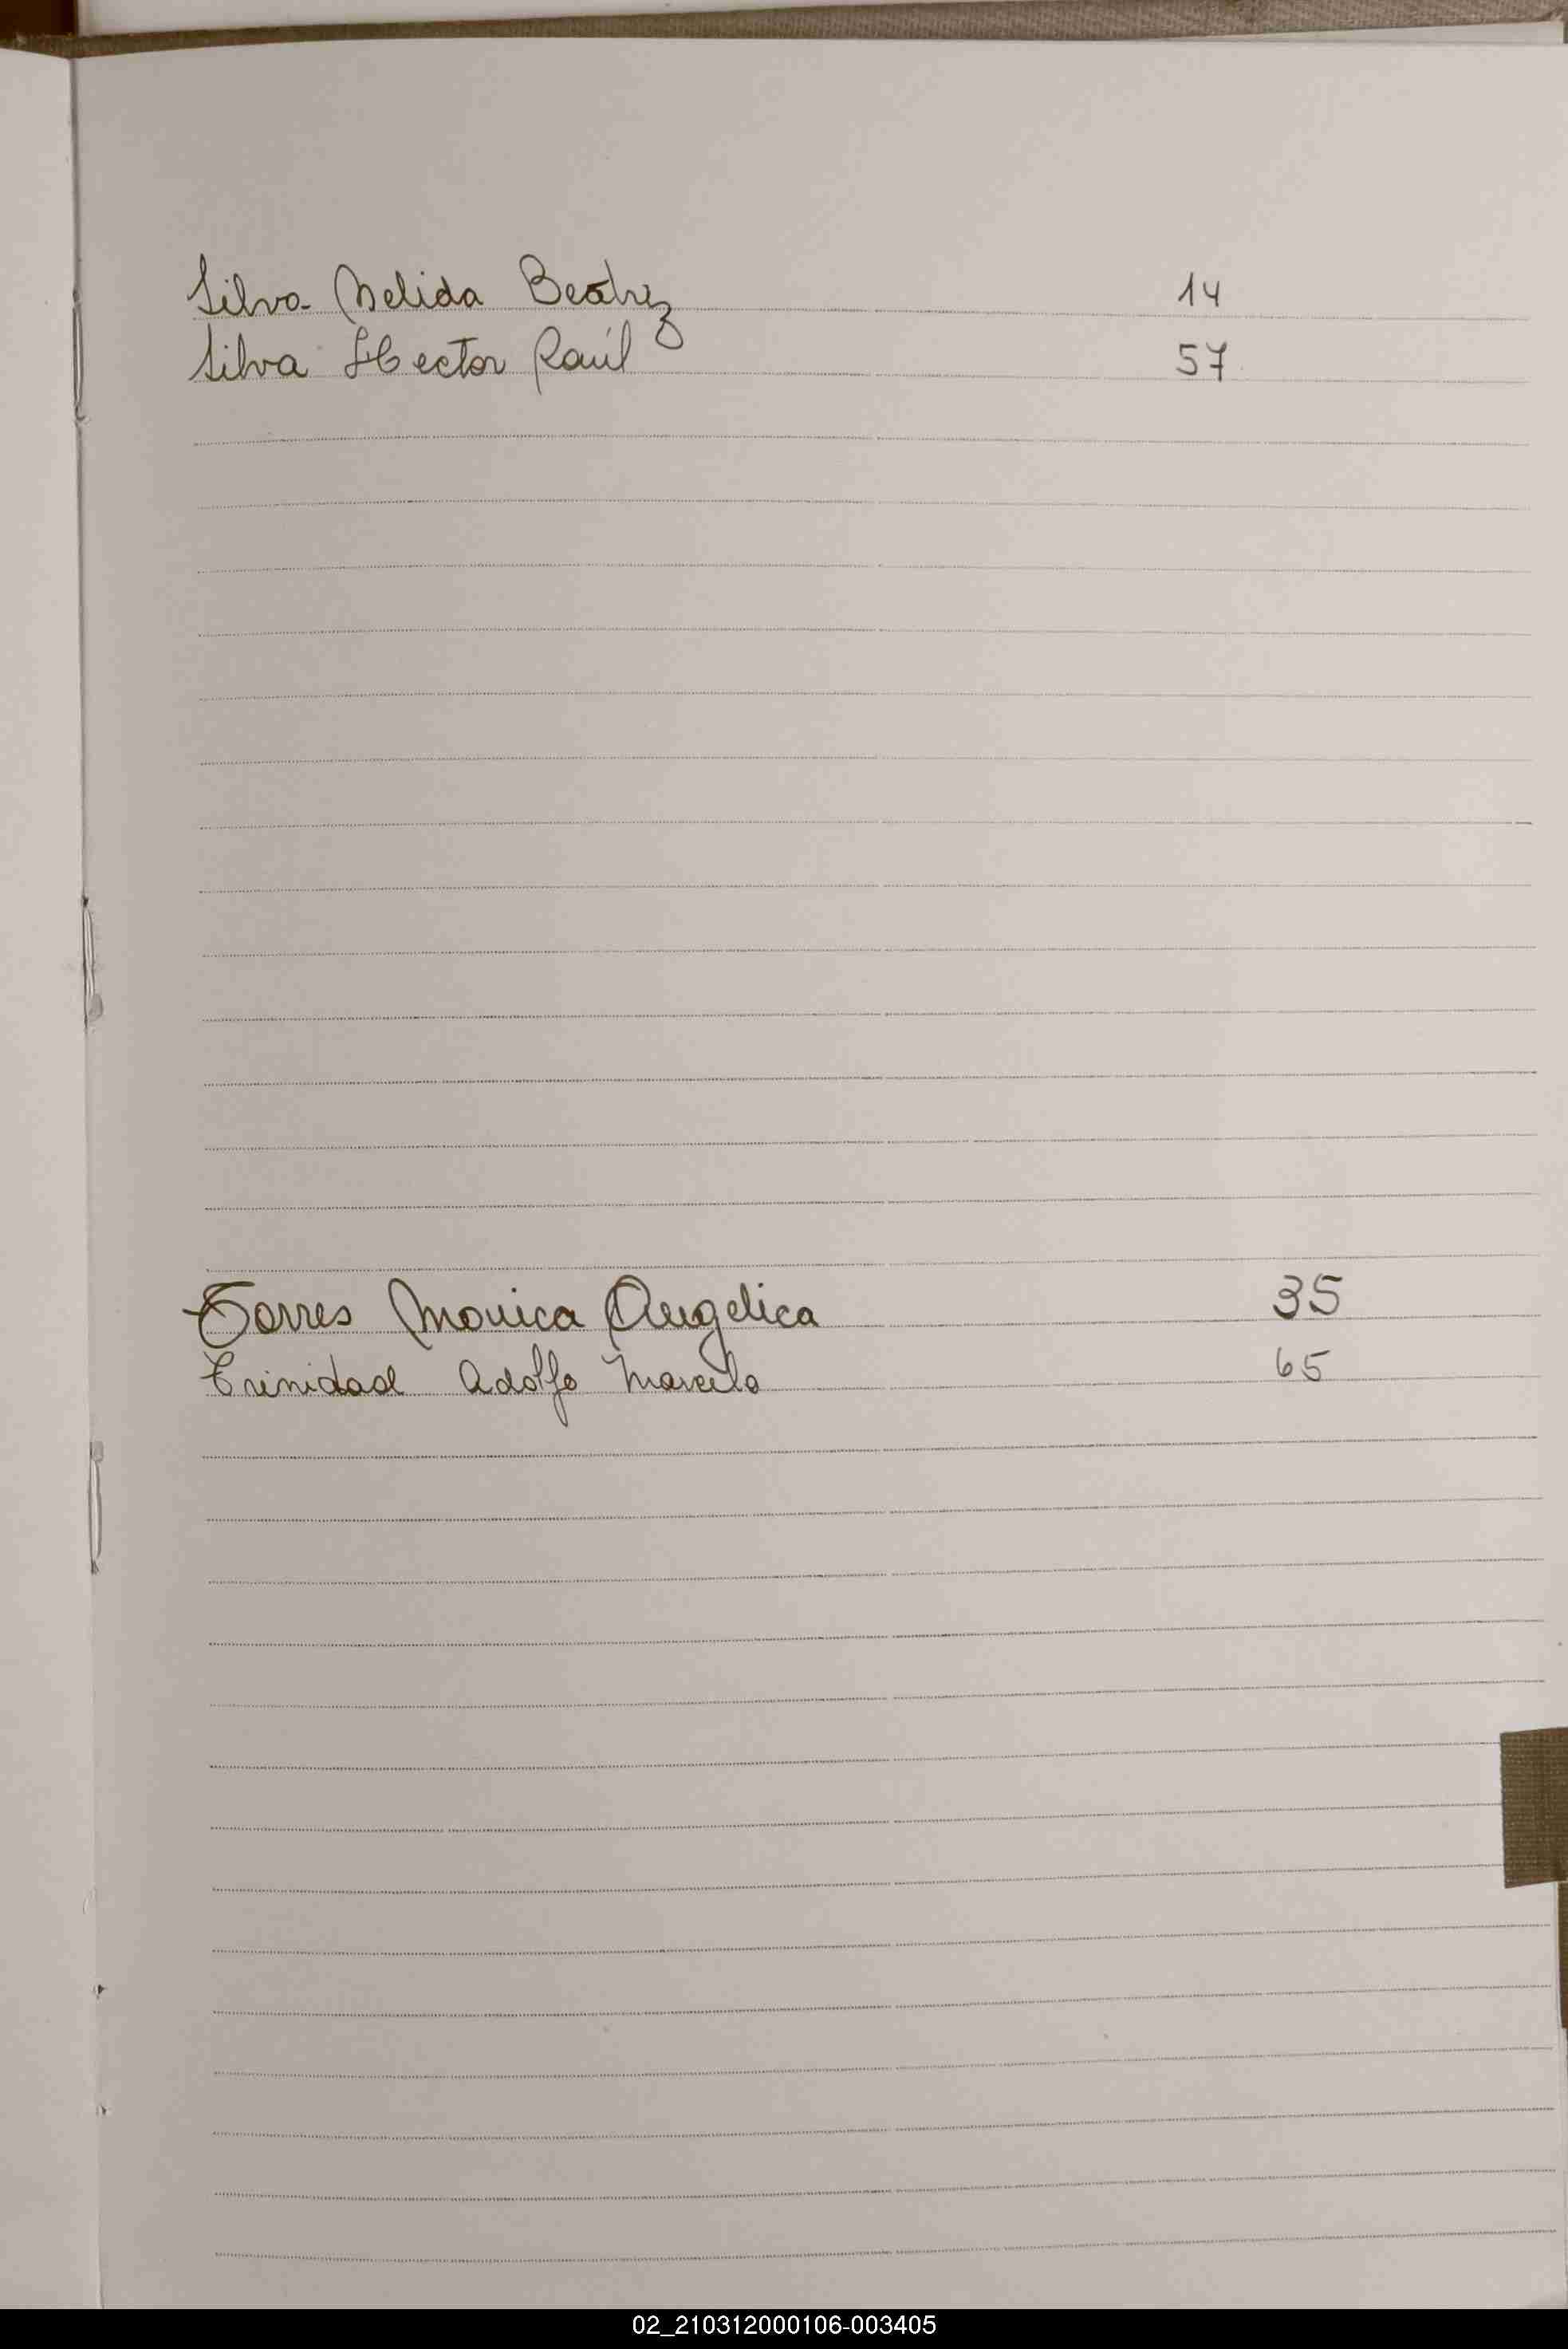 Silva Nelida Beatriz 14
Silva Hector Raúl 57
Torres Monica Angelica 35
Trinidad Adolfo Marcelo 65
02_210312000106-003405